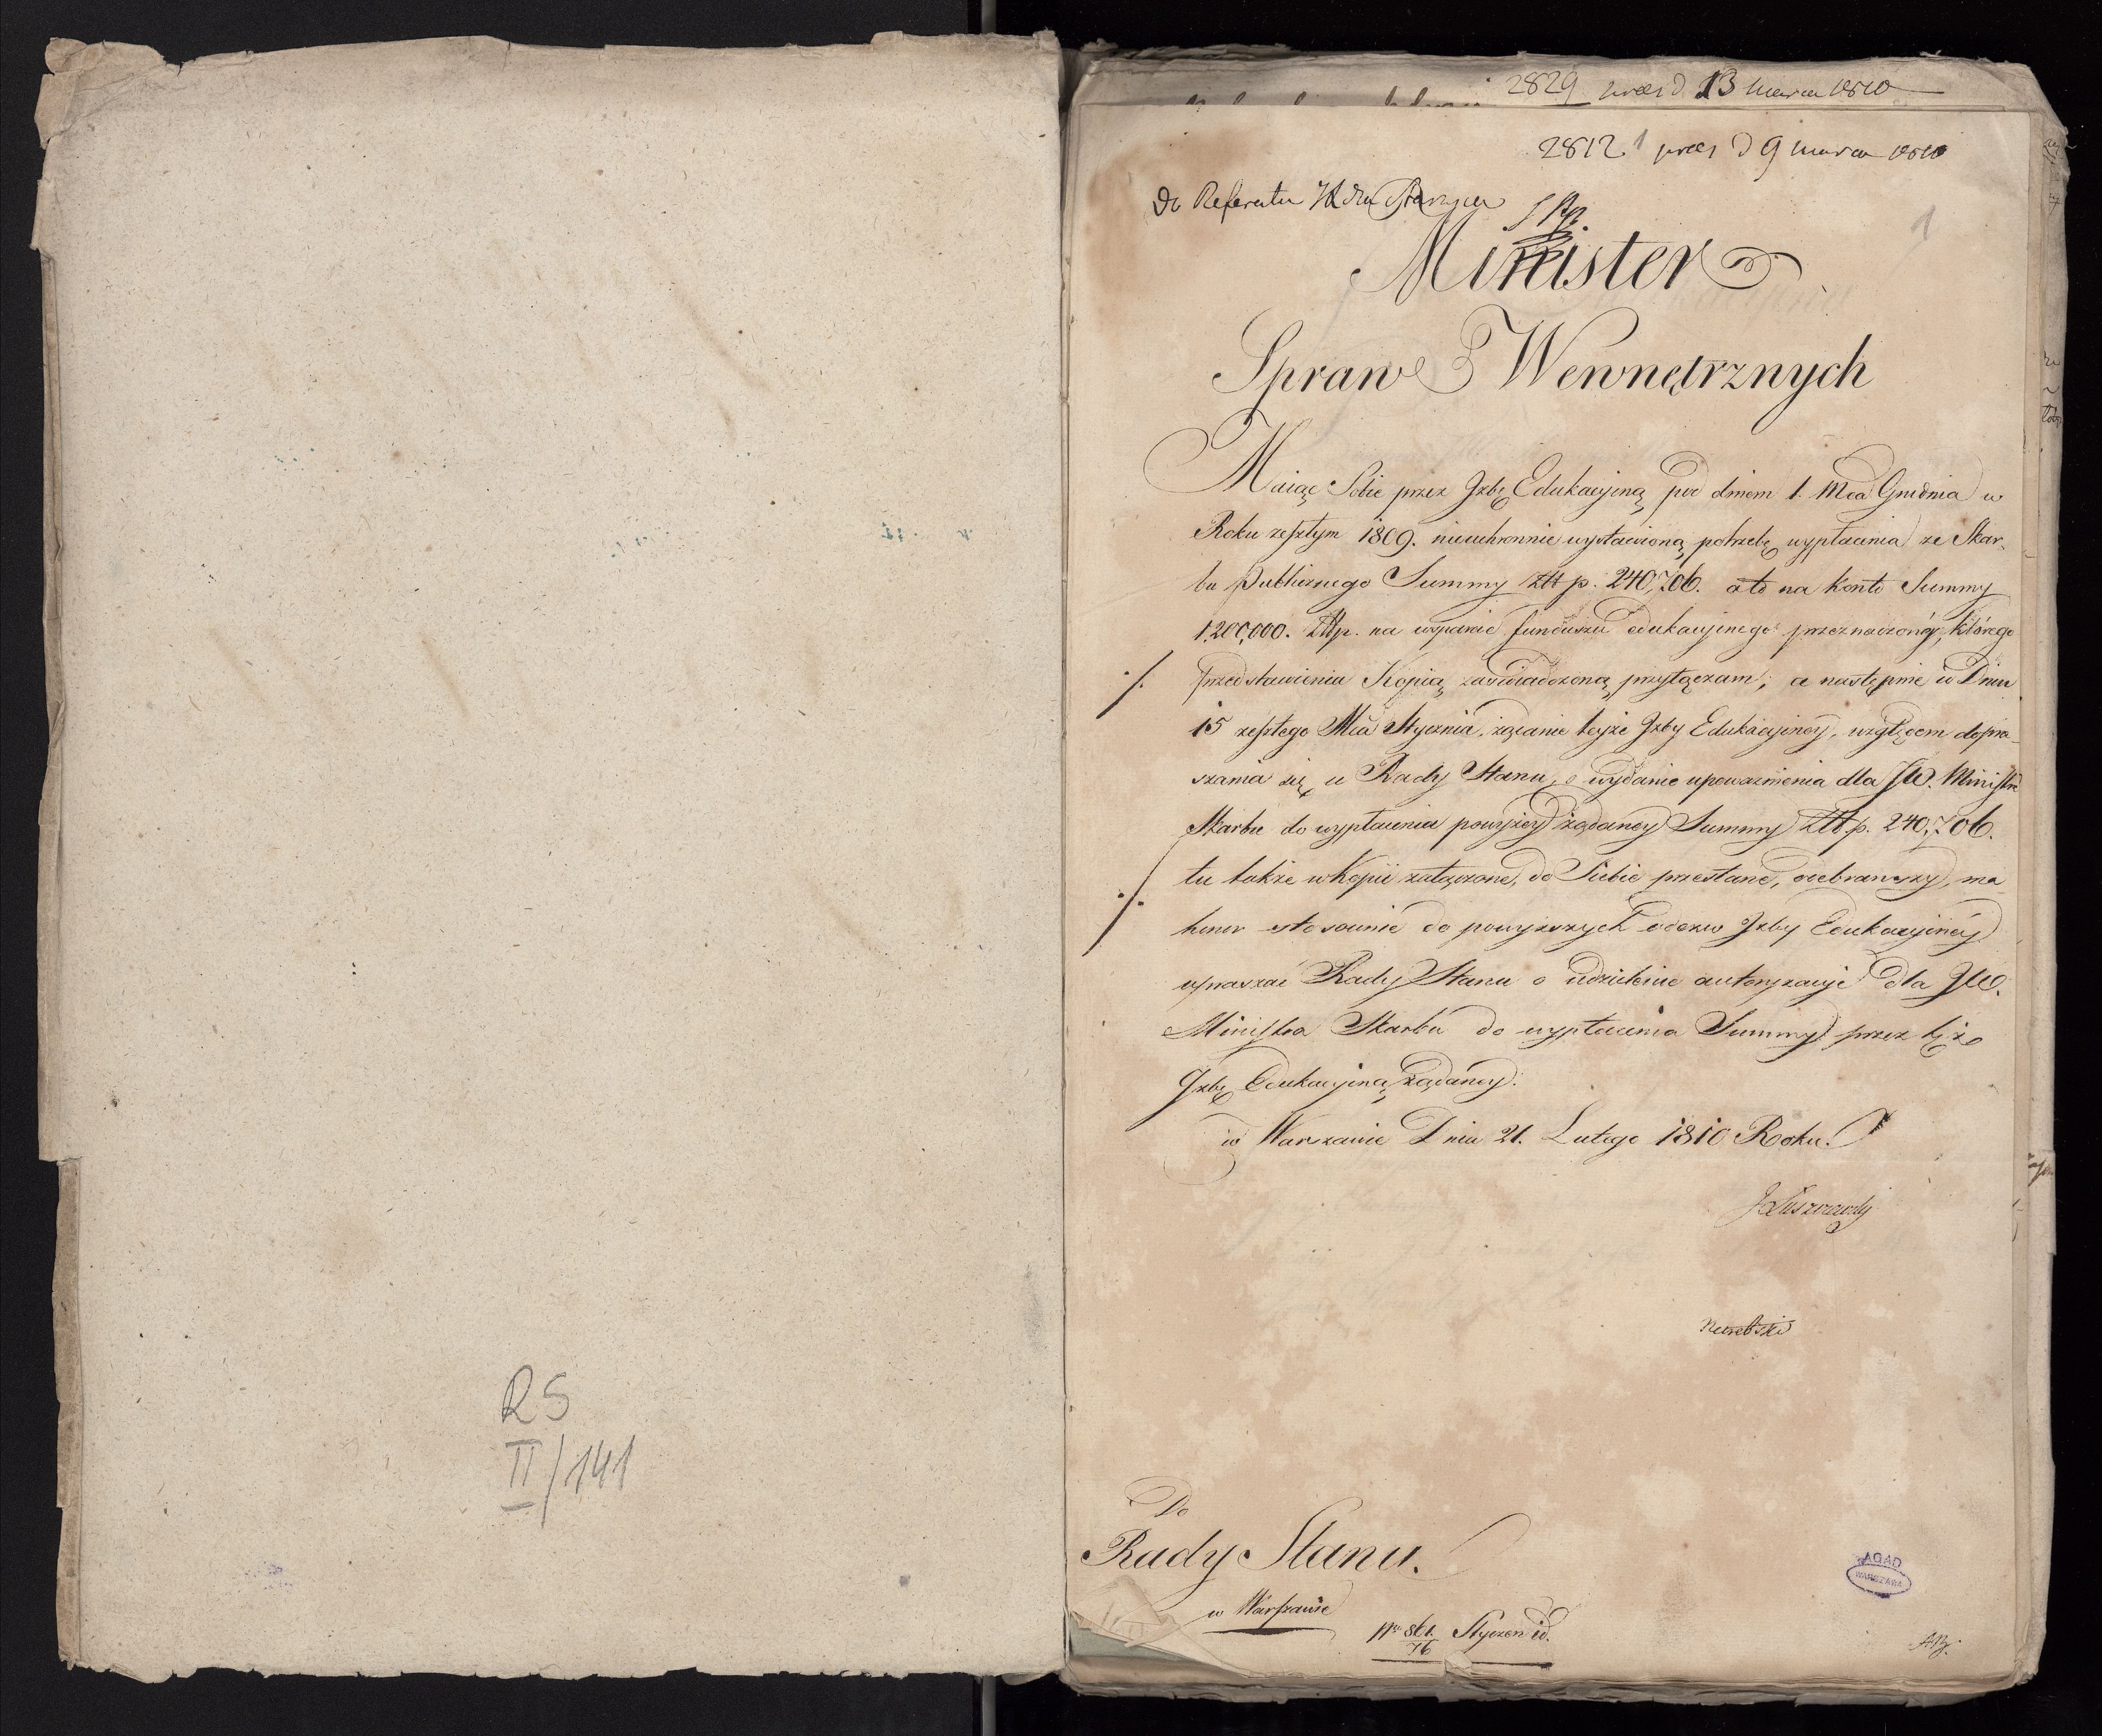 RS
II/141
2829 pres d 13 marca 1810
2812 pres d 9 marca 1810
1
Do Referatu
Minister
Spraw Wewnętrznych
Maiąc Sobie przez Jzbę Edukacyiną pod dniem 1. Mca Grudnia w
Roku zeszłym 1809. nieuchronnie wystawioną potrzebę wypłacenia ze Skar-
bu Publicznego Summy Złt p. 240,706. a to na konto Summy
1,200,000. Złtp. na wsparcie funduszu edukacyinego przeznaczoney, którego
przedstawienia Kopią zaświadczoną przyłączam; a następnie w Dniu
15 zeszłego Mca Stycznia, żądanie teyże Jzby Edukacyiney, względem dopra-
szania się u Rady Stanu, o wydanie upoważnienia dla JW. Ministra
Skarbu do wypłacenia powyżey żądaney Summy Złt p. 240,706.
tu także w Kopii załączone, do Siebie przesłane, odebrawszy, ma
honor stosownie do powyższych odezw Jzby Edukacyiney
upraszać Rady Stanu o udzielenie autoryzacyi dla JW.
Ministra Skarbu do wypłacenia Summy przez tęż
Jzbę Edukacyiną żądaney.
w Warszawie Dnia 21. Lutego 1810 Roku.
JŁuszczewski
Do
Rady Stanu.
w Warszawie
Nro 861. Styczeń id.
76
AGAD
WARSZAWA